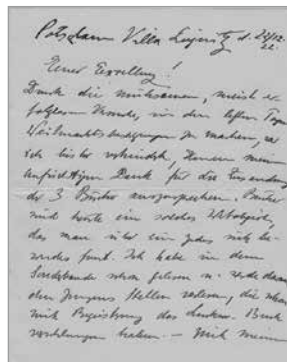 Potsdam Villa Liegnitz d. 24/12.
22.
Euer Exzellenz!
Durch die mühsamen, meist er
folglosen Versuche, in den letzten Tagen
Weihnachtsbesorgungen zu machen, war
ich bisher verhindert, Ihnen meinen
aufrichtigen Dank für die Zusendung
der 3 Bücher auszusprechen. Bücher
sind heute ein solches Wertobjekt,
das man über ein jedes sich be-
sonders freut. Ich habe in dem
schon gelesen u. werde daraus
den Jungens Stellen vorlesen, die schon
mit Begeisterung das
verschlungen haben. —